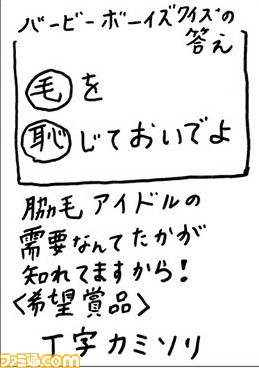 バービーボーイズクイズの
答え
毛を
恥じておいでよ
脇毛アイドルの
需要なんてたかが
知れてますから!
<希望賞品>
T字カミソリ
ファミ通.com